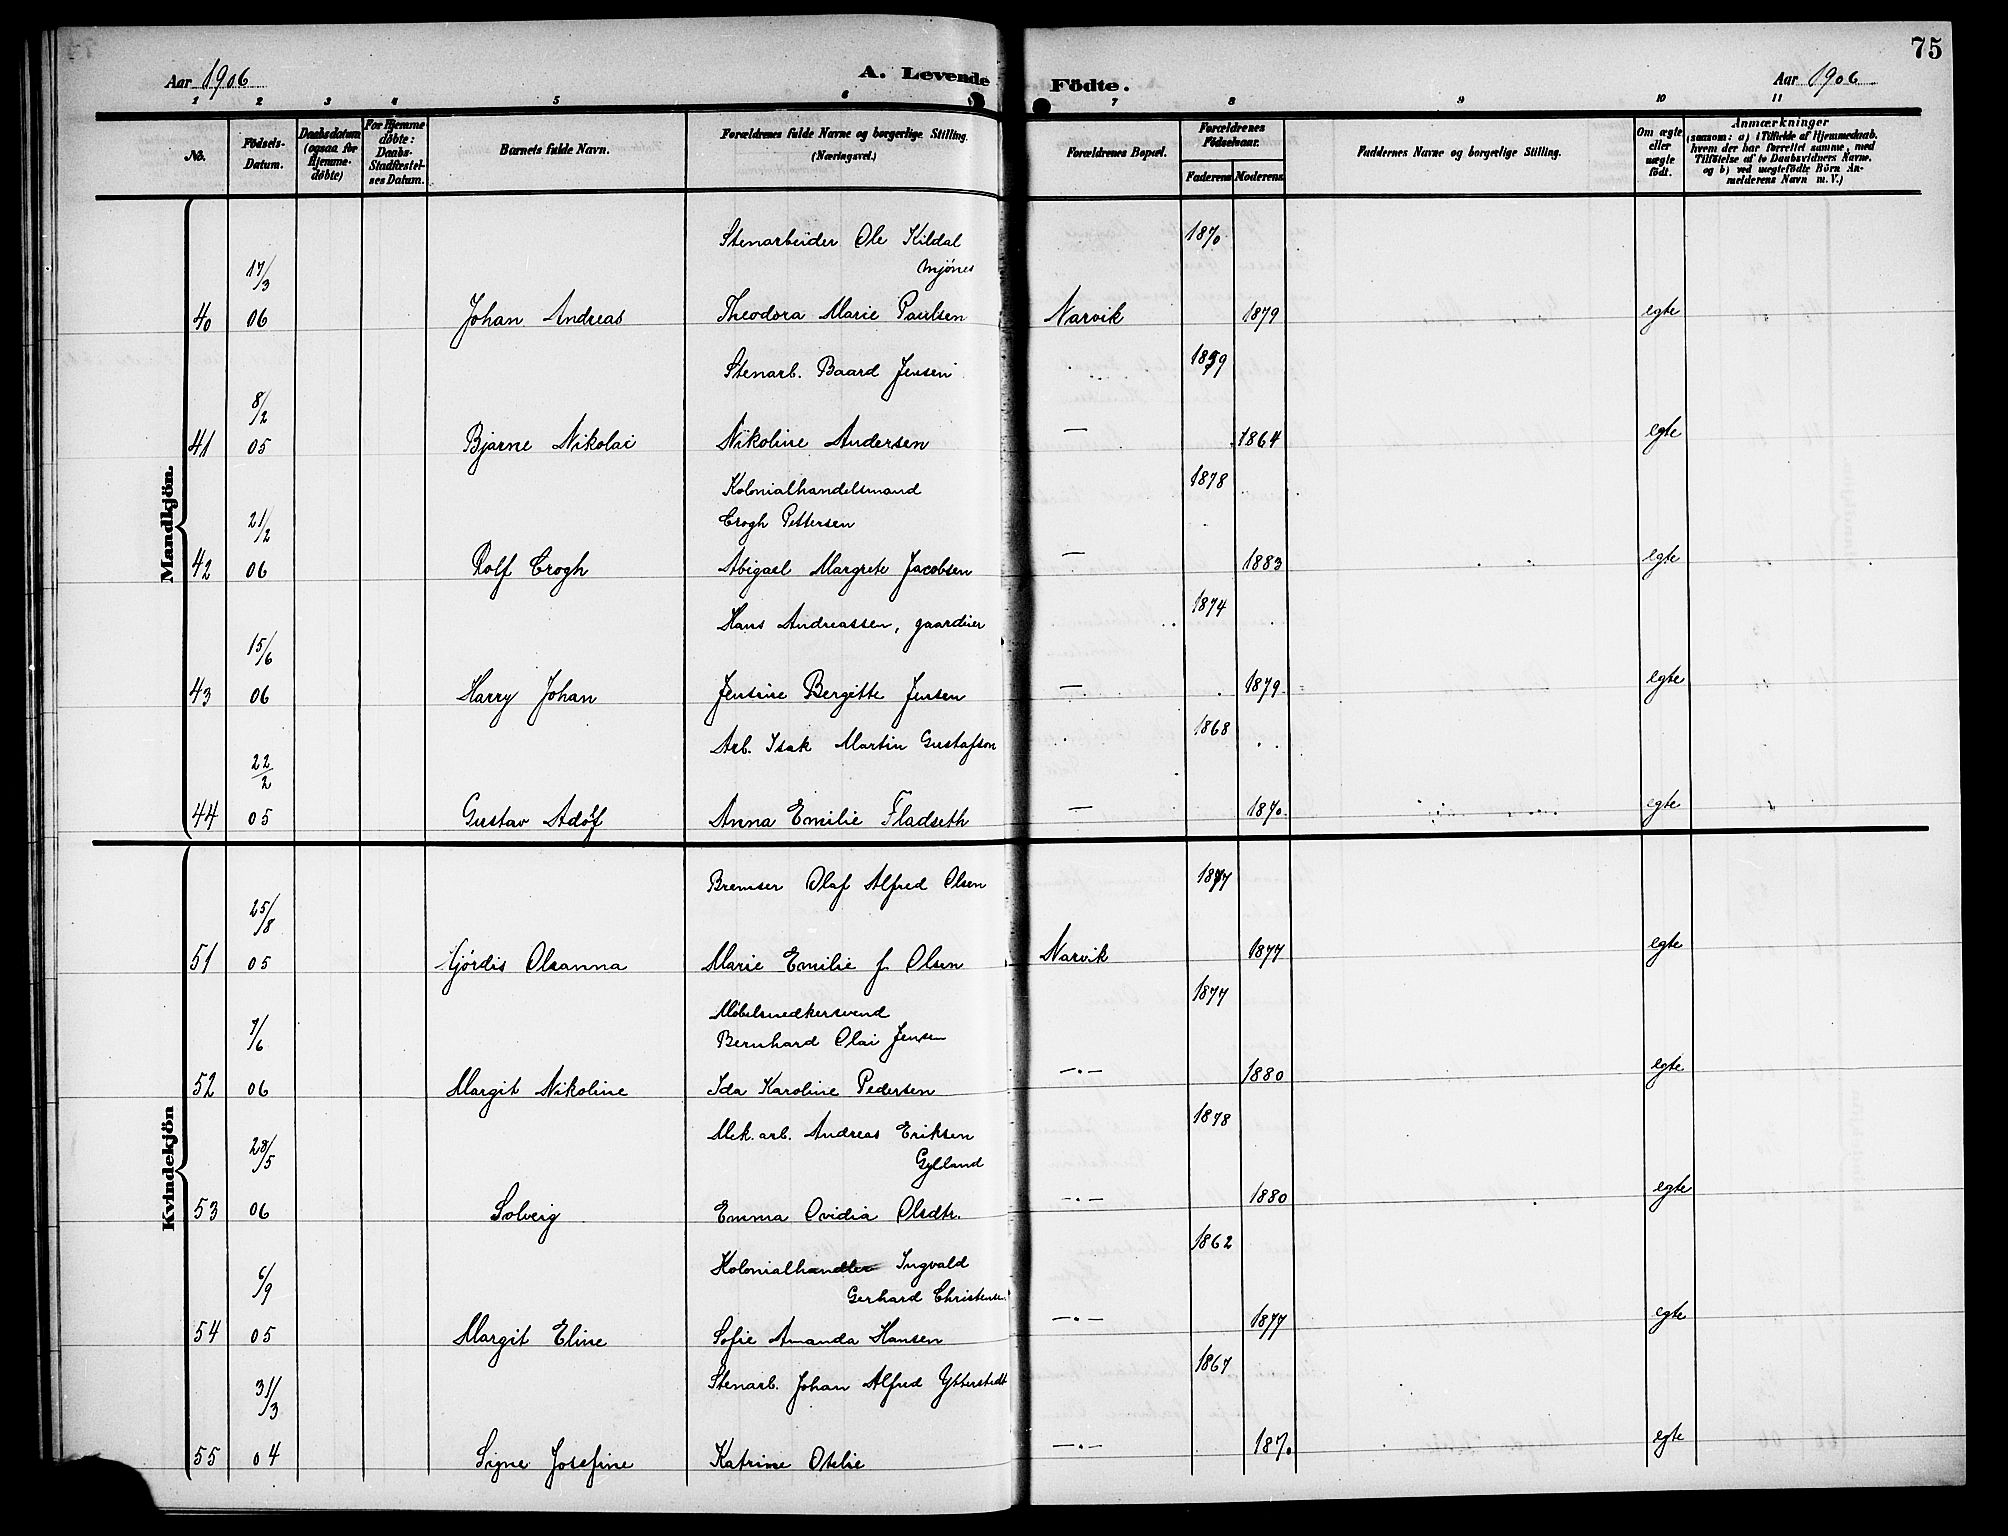 75
Aar 1906
A. Levende Födte.
Aar 1906
1 2 3 4 5 6 7 8 9 10 11
No.
Födsels-
Datum.
Daabsdatum
(ogsaa for
Hjemme-
døbte)
For Hjemme
døbte:
Daabs-
Stadfæstel-
ses Datum.
Barnets fulde Navn.
Forældrenes fulde Navne og borgerlige Stilling.
(Næringsvei.)
Forældrenes Bopæl.
Forældrenes
Födselsaar.
Faderens Moderens
Faddernes Navne og borgerlige Stilling.
Om ægte
eller
uægte
født.
Anmærkninger
(saasom: a) i Tilfælde af Hjemmedaab.
hvem der har forrettet samme, med
Tilföielse af to Daabsvidners Navne.
og b) ved uægtefödte Börn An-
melderens Navn m. V.)
Mandkjön.
Stenarbeider Ole Kildal 1870
17/3 Mjönes
40 06 Johan Andreas Theodora Marie Paulsen Narvik 1879 egte
Stenarb. Baard Jensen 1859
8/2
41 05 Bjarne Nikolai Nikoline Andersen — 1864 egte
Kolonialhandelsmand 1878
21/2 Crogh Pettersen
42 06 Rolf Crogh Abigael Margrete Jacobsen — 1883 egte
Hans Andreassen, gaardeier 1874
15/6
43 06 Harry Johan Jensine Bergitte Jensen — 1879 egte
Arb. Isak Martin Gustafson 1868
22/2
44 05 Gustav Adolf Anna Emilie Fladseth — 1870 egte
Kvindekjön
Bremser Olaf Alfred Olsen 1877
25/8
51 05 Hjördis Oleanna Marie Emilie f. Olsen Narvik 1877 egte
Møbelsnedkersvend 1877
7/6 Bernhard Olai Jensen
52 06 Margit Nikoline Ida Karoline Pedersen —"— 1880 egte
Mek. arb. Andreas Eriksen 1878
28/5 Gylland
53 06 Solveig Emma Ovidia Olsdtr. —"— 1880 egte
Kolonialhandler Ingvald 1862
6/9 Gerhard Christensen
54 05 Margit Eline Sofie Amanda Hansen —"— 1877 egte
Stenarb. Johan Alfred Ytterstedt 1867
31/3
55 04 Signe Josefine Katrine Otelie —"— 1870 egte